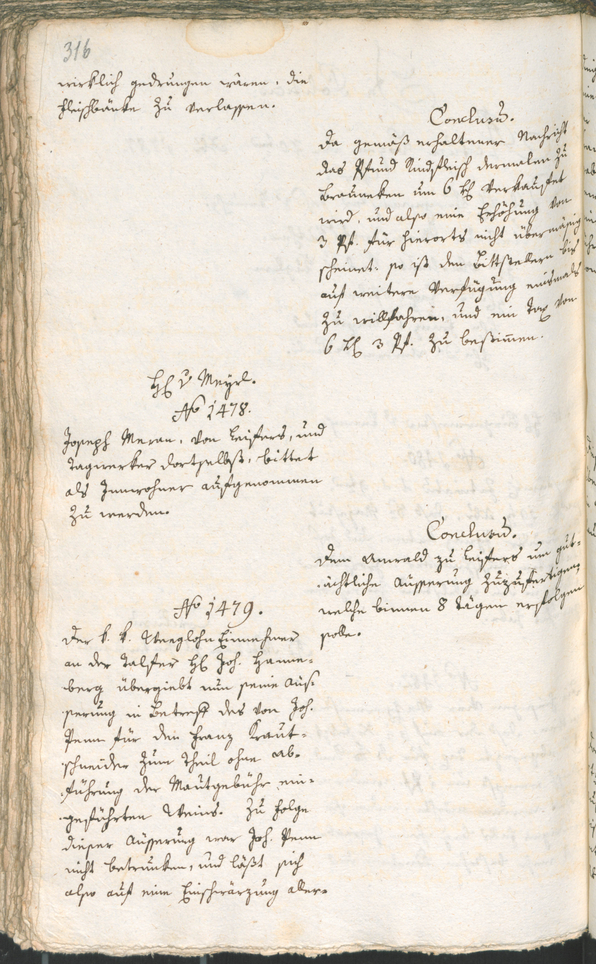 316
wirklich gedrungen wären, die
Fleischbänke zu verlassen.
Conclusum.
Da gemäß erhaltener Nachricht
das Pfund Rindfleisch dermalen zu
Brauneken um 6 kr verkaufet
wird, und also eine Erhöhung von
3 Pf. für hierorts nicht übermäsig
scheinet, so ist den Bittstellern bis
auf weitere Verfügung einsmals
zu willfahren, und ein Tax von
6 kr 3 Pf. zu bestimmen.
H v Meyrl.
No 1478.
Joseph Meran, von Leifers, und
Tagwerker dortselbst, bittet
als Innwohner aufgenommen
zu werden.
Conclusum.
Dem Anwald zu Leifers um gut-
ächtliche Äusserung zuzufertigen,
welche binnen 8 Tägen erfolgen
solle.
No 1479.
Der k. k. Weeglohn Einnehmer
an der Talfer H Joh. Hanne-
berg übergiebt nun seine Äus-
serung in Betreff des von Joh.
Penn für den Franz Kraut-
schneider zum Theil ohne Ab-
führung der Mautgebühr ein-
geführten Weins. Zu Folge
dieser Äusserung war Joh. Penn
nicht betrunken, und läßt sich
also auf eine Einschwärzung aller-